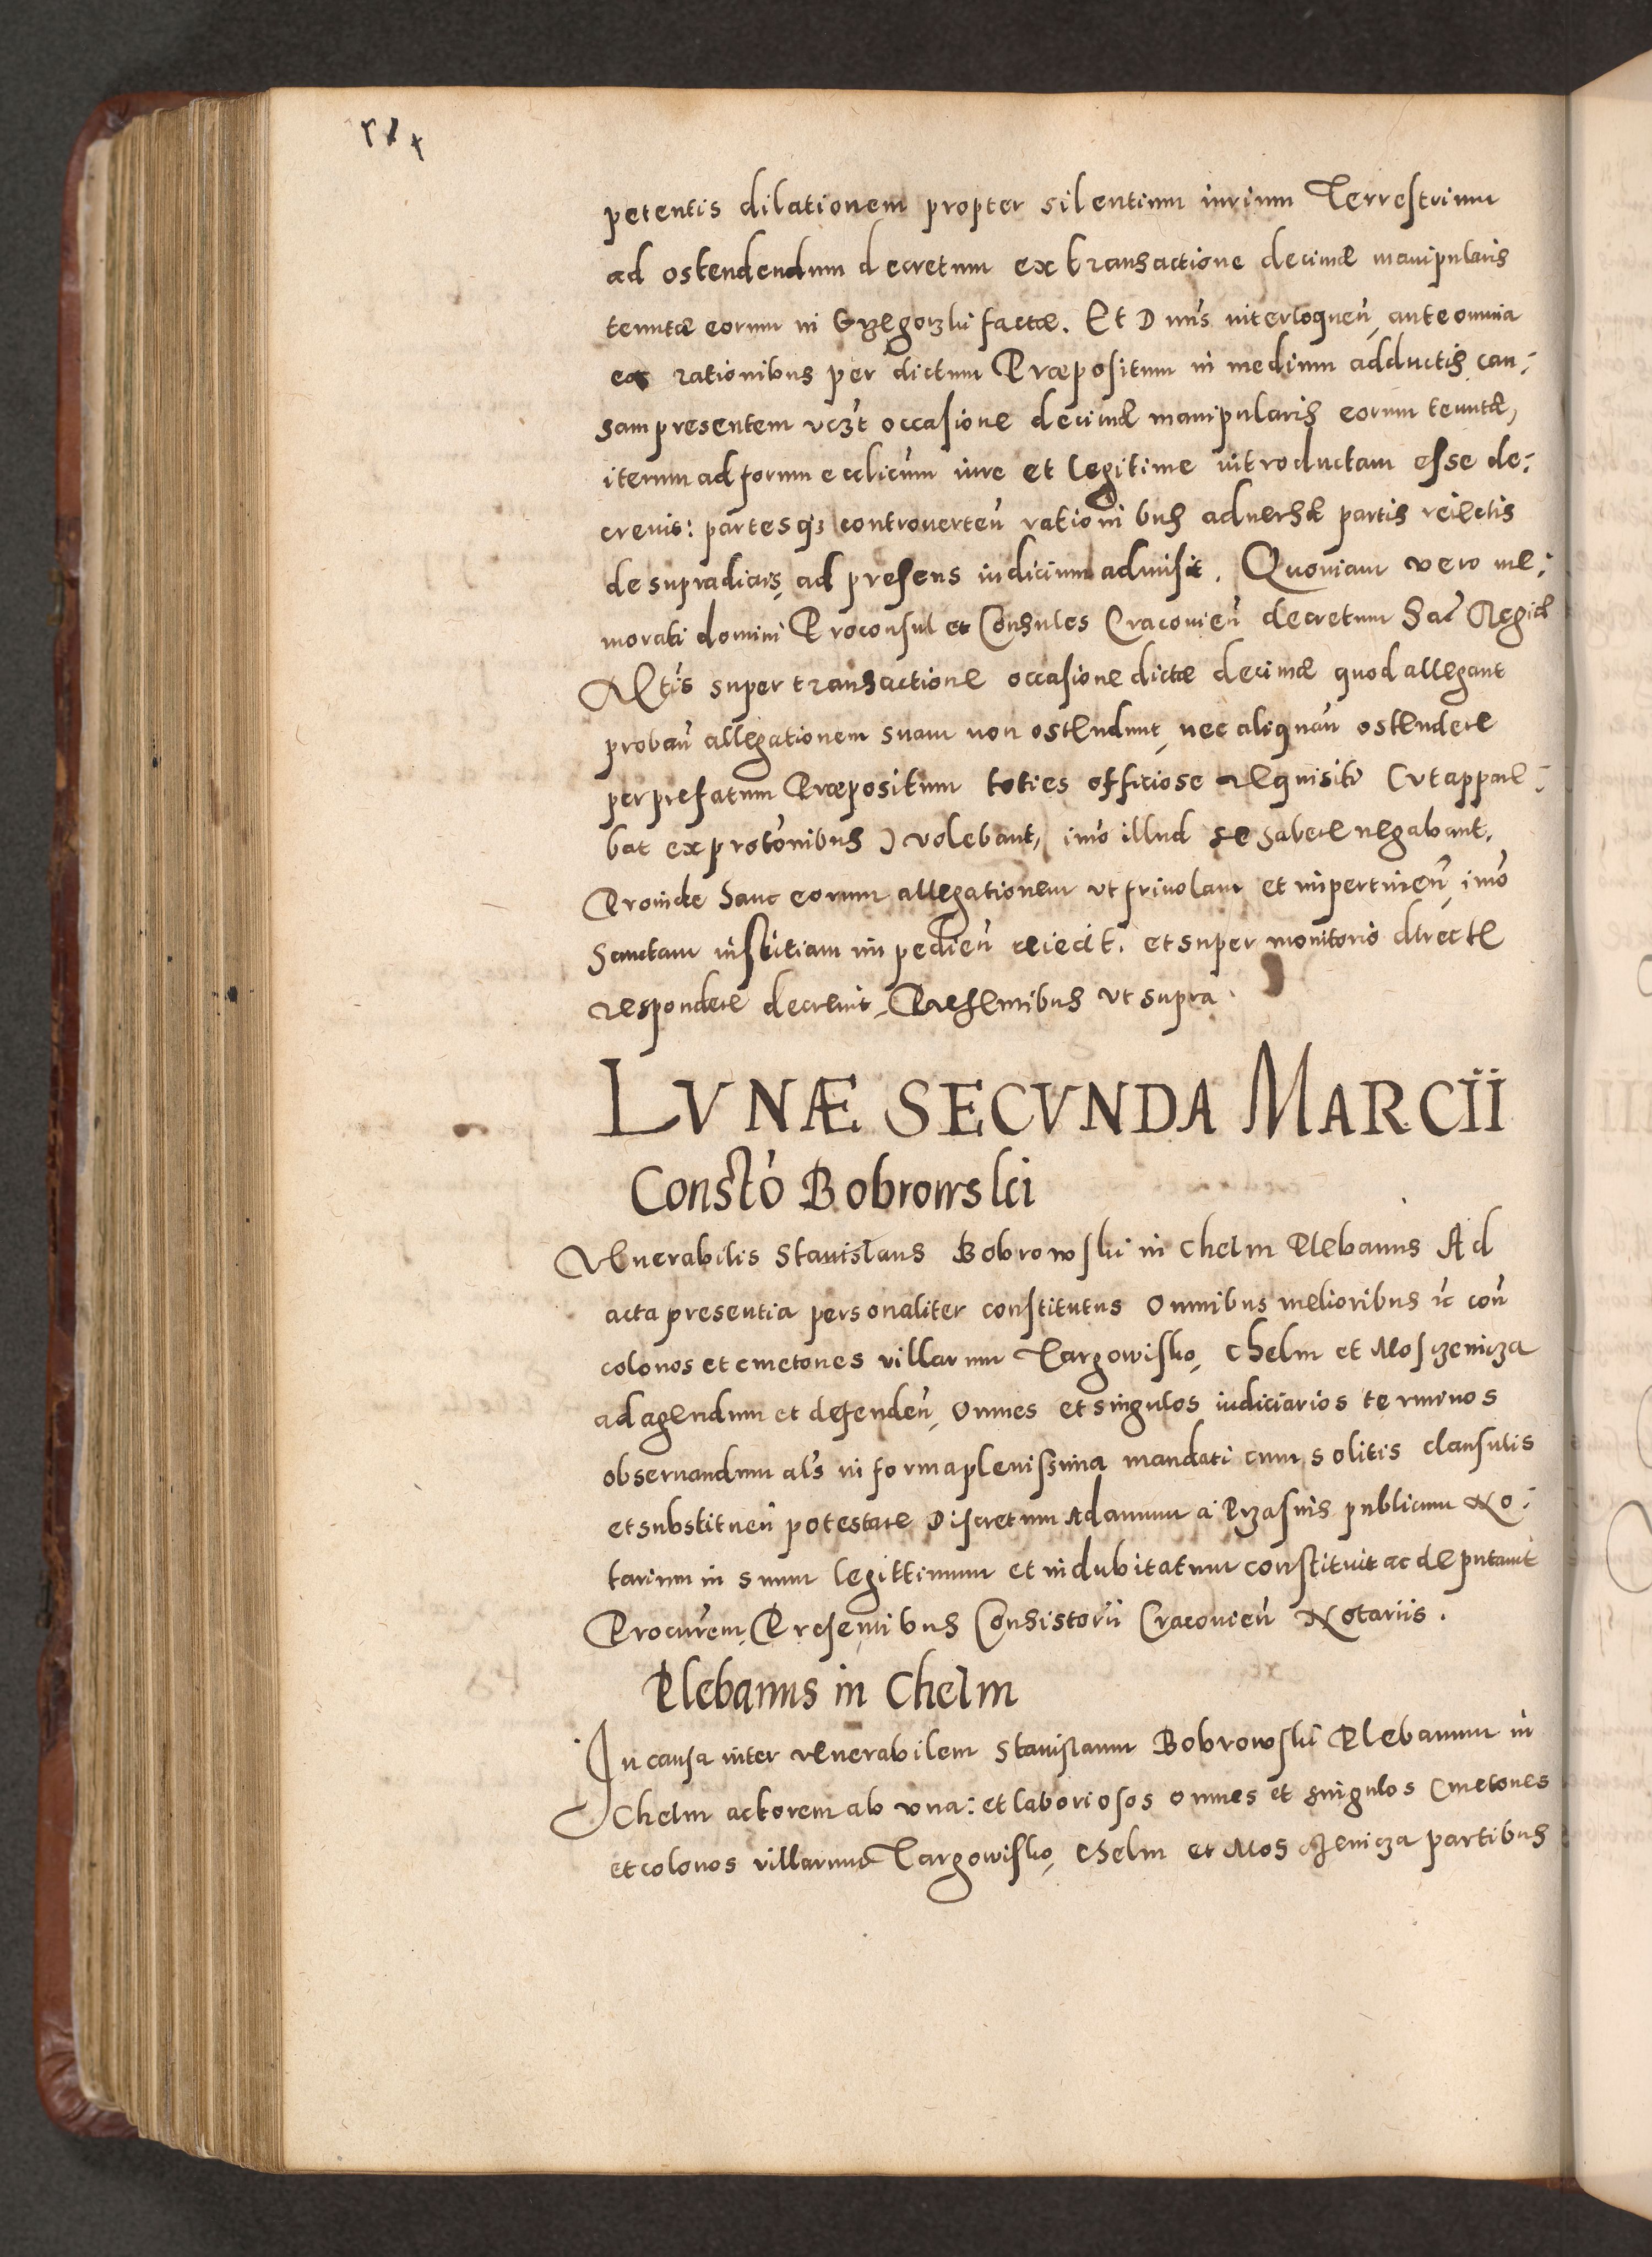 petentis dilationem propter silentium iurium Terrestrium
ad ostendendum decretum ex transactione decimæ manipularis
tenutæ eorum in Grzegorzki factæ. Et D nus interloquen̄, ante omnia
ex rationibus per dictum Præpositum in medium adductis cau:
sam presentem vczt occasione decimæ manipularis eorum tenutæ,
iterum ad forum ecclicum iure et legitime introductam esse de:
creuit: partesq3 controuerten̄ rationibus aduersæ partis reiectis
de supradictis, ad presens iudicium admisit. Quoniam vero me:
morati domini Proconsul et Consules Cracouien̄ decretum Sac Regiæ
Mtis super transactione occasione dictæ decimæ quod allegant
proban̄ allegationem suam non ostendunt, nec aliquan̄ ostendere
per prefatum Præpositum toties officiose requisiti (vt appare:
bat ex protōnibus) volebant, imo illud se habere negabant.
Proinde hanc eorum allegationem vt friuolam et impertinen̄, imo
Sanctam iustitiam impedien̄ reiecit. et super monitorio directe
respondere decreuit, Presentibus vt supra.
LVNÆ SECVNDA MARCII
Constō Bobrowski
Venerabilis Stanislaus Bobrowski in Chelm Plebanus Ad
acta presentia personaliter constitutus Omnibus melioribus ic con̄
colonos et cmetones villarum Targowisko, Chelm et Moszczenicza
ad agendum et defenden̄, Omnes et singulos iudiciarios terminos
obseruandum als in forma plenissima mandati cum solitis clausulis
et substituen̄ potestate Discretum Adamum a Przasnis publicum No:
tarium in suum legittimum et indubitatum constituit ac deputauit
Procurem, Presentibus Consistorii Cracouien̄ Notariis.
Plebanus in Chelm
In causa inter venerabilem Stanislaum Bobrowski Plebanum in
Chelm actorem ab vna: et laboriosos omnes et singulos Cmetones
et colonos villarum Targowisko, Chelm et Moszczenicza partibus